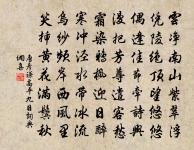 雲淨南山紫翠浮
凭陵絕頂望悠悠
偶逢佳節牽詩興
漫把芳尊遣客愁
霜染鴉楓迎日醉
寒沖涇水帶冰流
烏紗頻岸西風裏
笑插黃花滿鬢秋
唐彥謙高平九日詞典
網